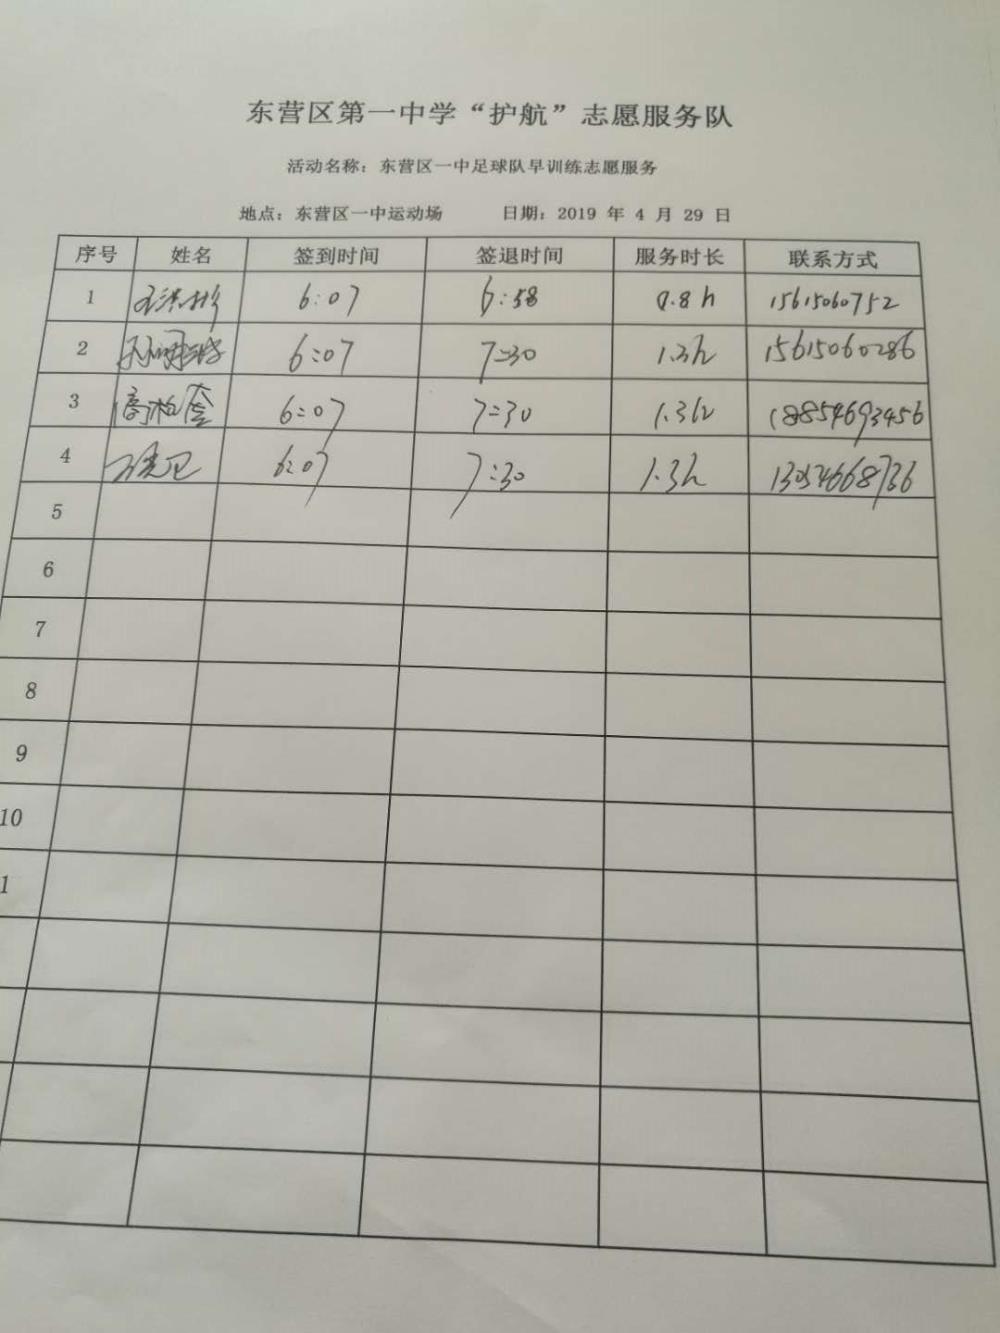 东营区第一中学“护航”志愿服务队
活动名称：东营区一中足球队早训练志愿服务
地点：东营区一中运动场 日期：2019 年 4 月 29 日
序号 姓名 签到时间 签退时间 服务时长 联系方式
1 6:07 6:58 0.8h 15615060752
2 6:07 7:30 1.3h 15615060286
3 6:07 7:30 1.3h 18854693456
4 6:07 7:30 1.3h 13054668736
5
6
7
8
9
10
1